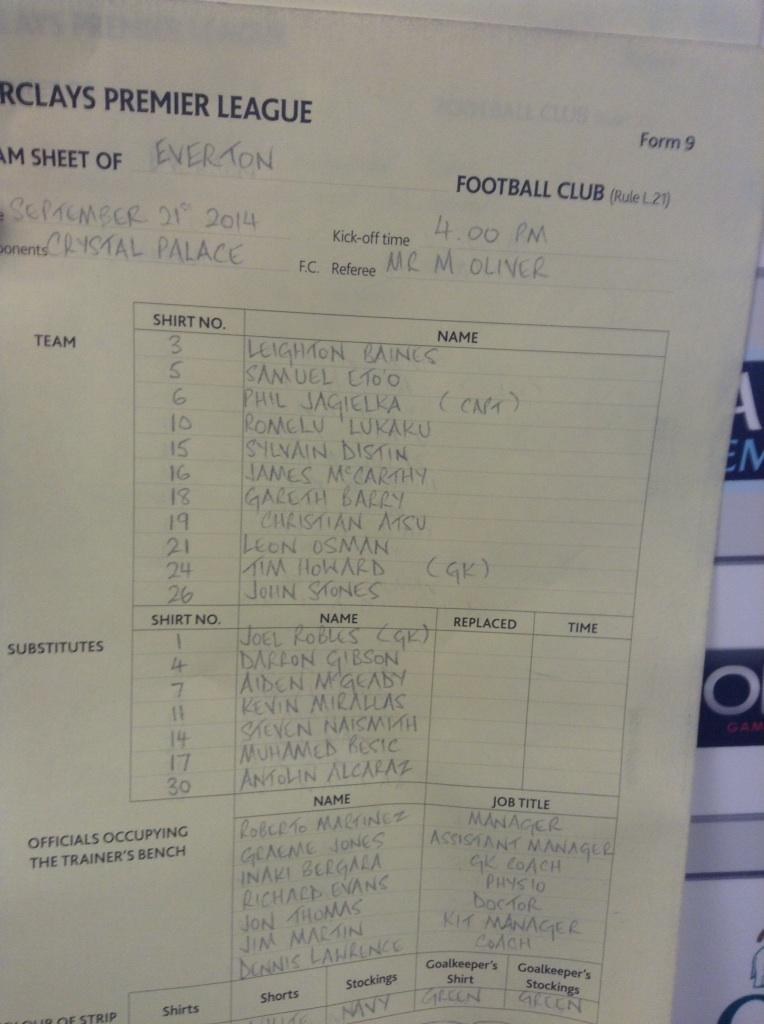 RCLAYS PREMIER LEAGUE
Form 9
AM SHEET OF EVERTON
FOOTBALL CLUB (Rule L.21)
SEPTEMBER 21ST 2014
Kick-off time 4.00 PM
ponents CRYSTAL PALACE
F.C. Referee MR M OLIVER
TEAM
SHIRT NO. NAME
3 LEIGHTON BAINES
5 SAMUEL ETO'O
6 PHIL JAGIELKA (CAPT)
10 ROMELU LUKAKU
15 SYLVAIN DISTIN
16 JAMES McCARTHY
18 GARETH BARRY
19 CHRISTIAN ATSU
21 LEON OSMAN
24 TIM HOWARD (GK)
26 JOHN STONES
SUBSTITUTES
SHIRT NO. NAME REPLACED TIME
1 JOEL ROBLES (GK)
4 DARRON GIBSON
7 AIDEN McGEADY
11 KEVIN MIRALLAS
14 STEVEN NAISMITH
17 MUHAMED BESIC
30 ANTOLIN ALCARAZ
OFFICIALS OCCUPYING
THE TRAINER'S BENCH
NAME JOB TITLE
ROBERTO MARTINEZ MANAGER
GRAEME JONES ASSISTANT MANAGER
INAKI BERGARA GK COACH
RICHARD EVANS PHYSIO
JON THOMAS DOCTOR
JIM MARTIN KIT MANAGER
DENNIS LAWRENCE COACH
OUR OF STRIP
Shirts Shorts Stockings Goalkeeper's Shirt Goalkeeper's Stockings
WHITE NAVY GREEN GREEN